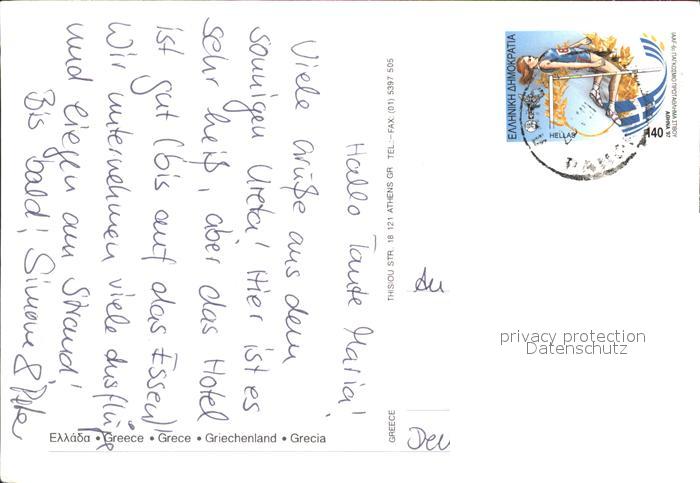 Hallo Tante Maria!
Viele Grüße aus dem
sonnigen Kreta! Hier ist es
sehr heiß, aber das Hotel
ist gut (bis auf das Essen)!
Wir unternehmen viele Ausflüge
und liegen am Strand!
Bis bald! Simone &
Ελλάδα • Greece • Grece • Griechenland • Grecia
GREECE THISIOU STR. 18 121 ATHENS GR TEL.-FAX (01) 5397 505
ΕΛΛΗΝΙΚΗ ΔΗΜΟΚΡΑΤΙΑ
HELLAS
140
IAAF-6ο ΠΑΓΚΟΣΜΙΟ ΠΡΩΤΑΘΛΗΜΑ ΣΤΙΒΟΥ
ΑΘΗΝΑ '97
An
privacy protection
Datenschutz